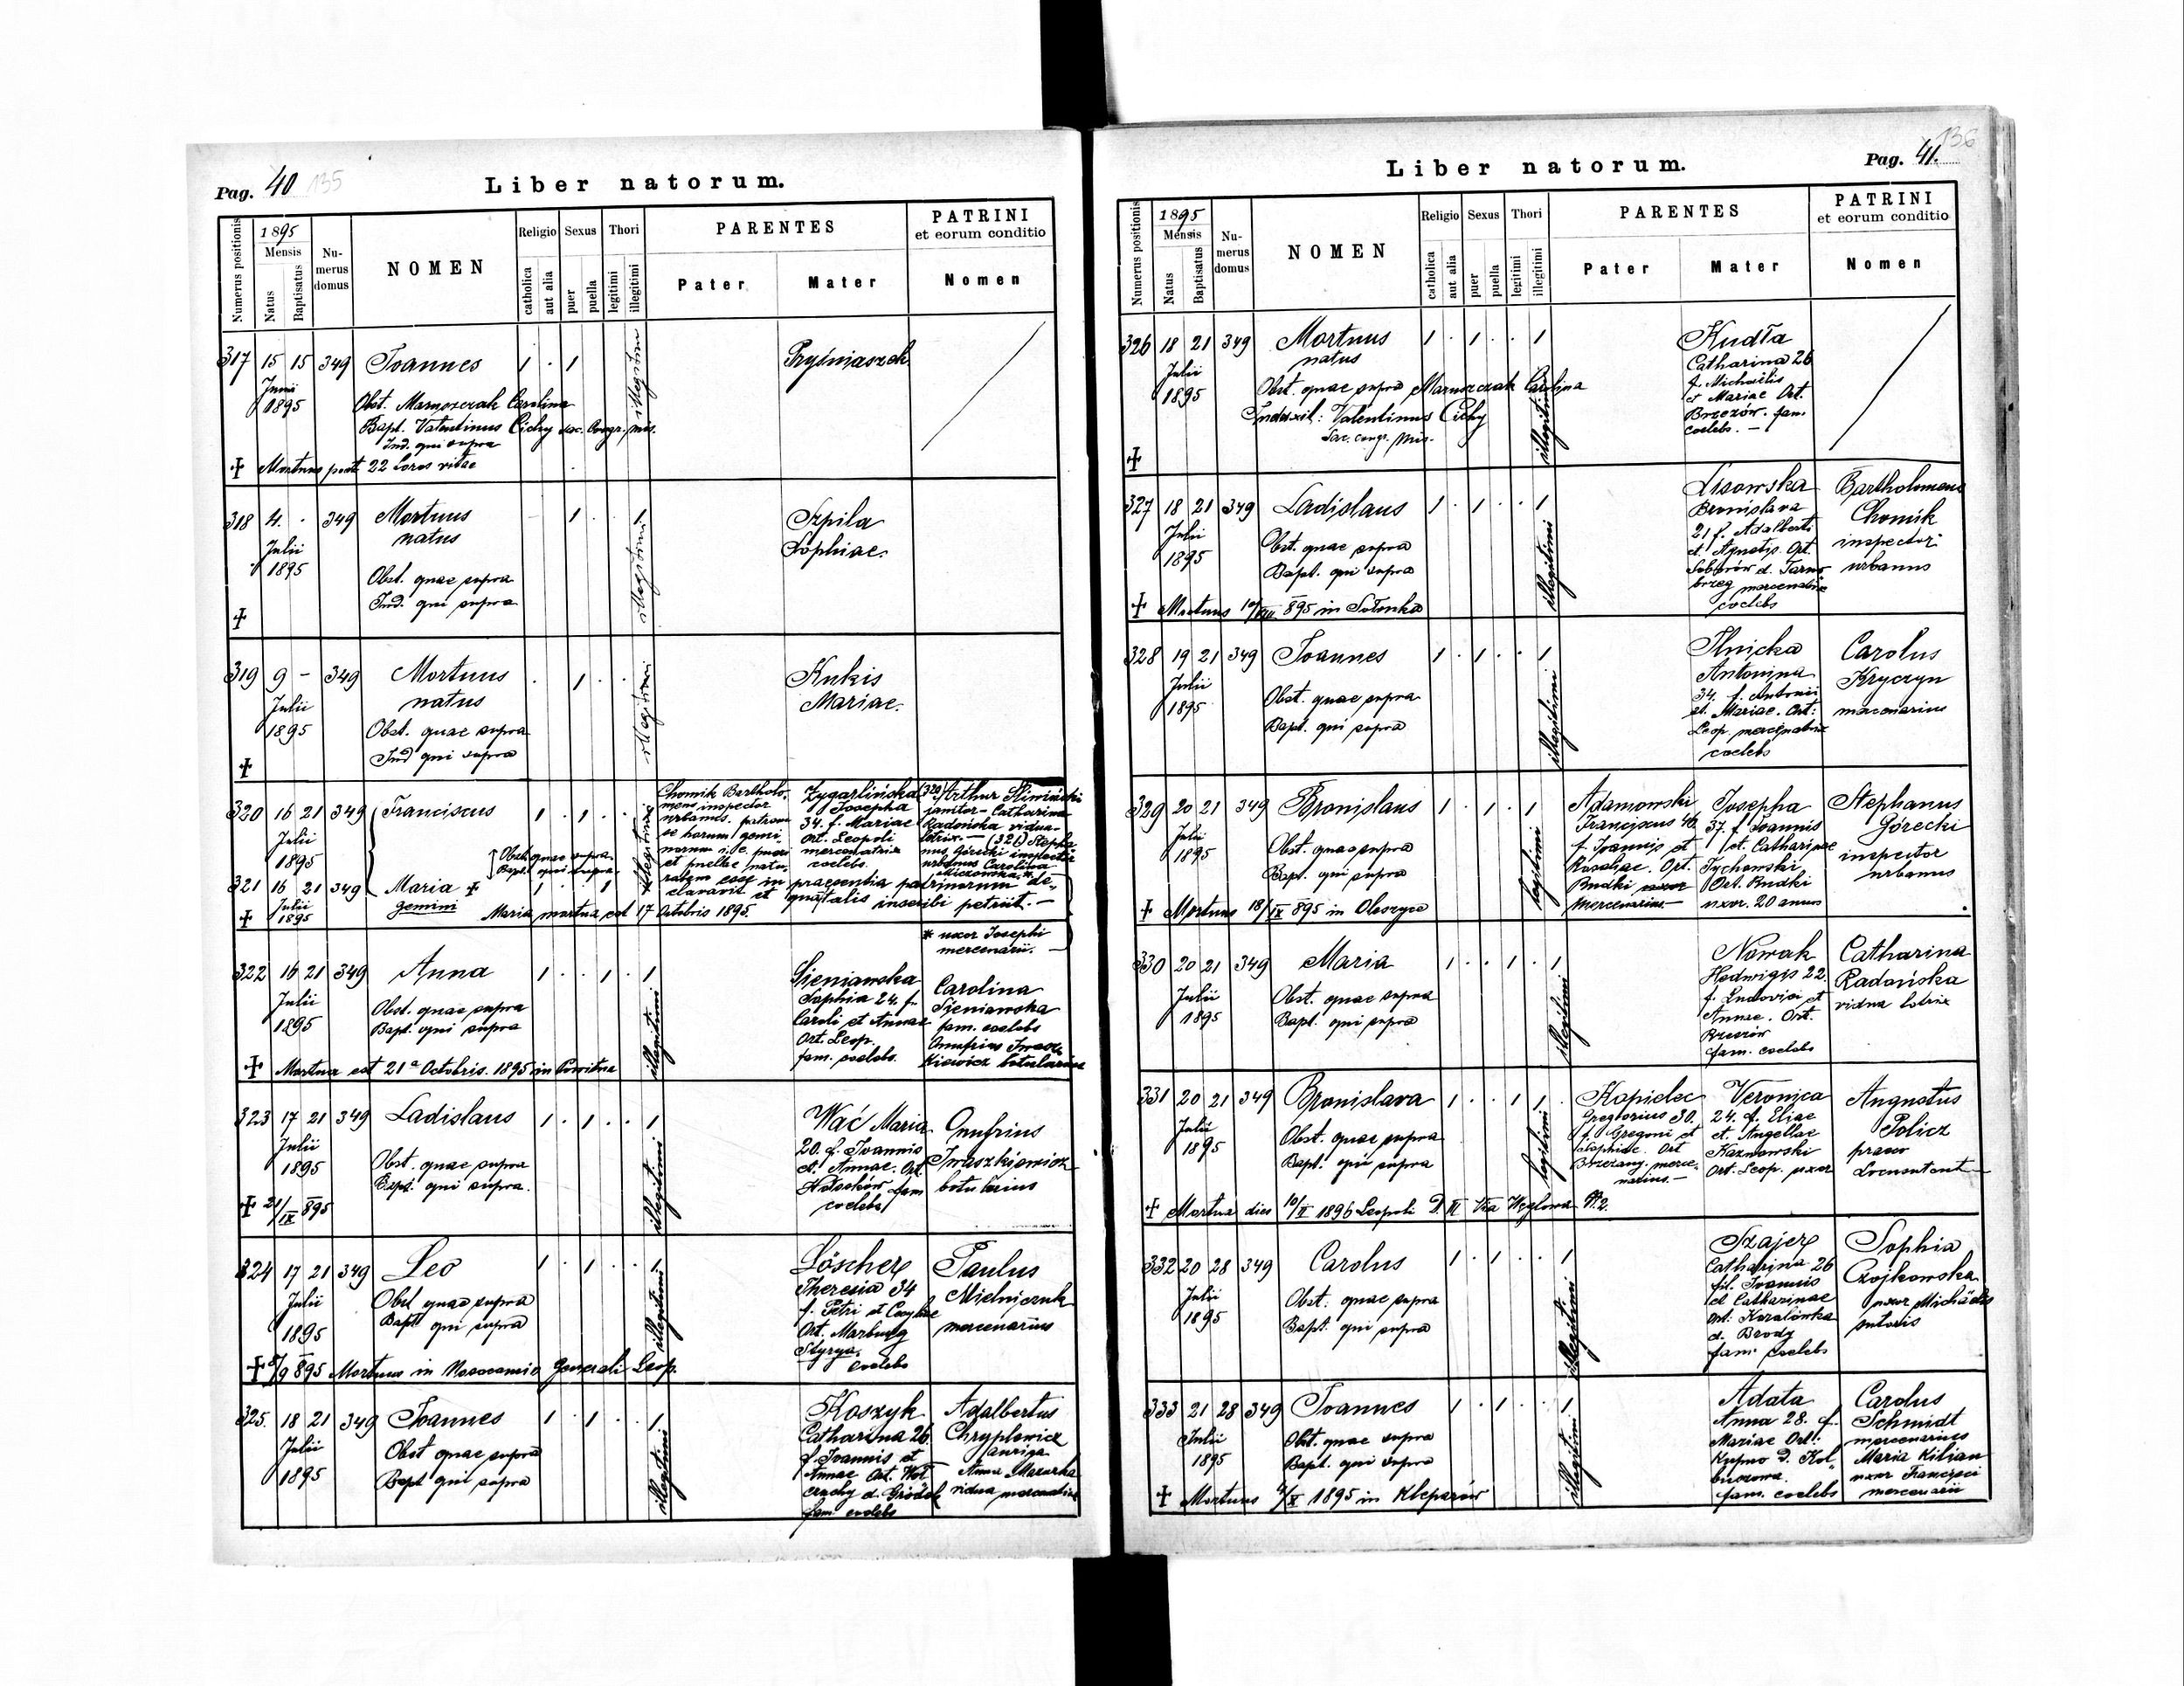 Pag. 40 135
Liber natorum.
Numerus positionis
1895
Mensis
Natus
Baptisatus
Nu-
merus
domus
NOMEN
Religio
catholica
aut alia
Sexus
puer
puella
Thori
legitimi
illegitimi
PARENTES
Pater
Mater
PATRINI
et eorum conditio
Nomen
317 15 15 349 Joannes 1 . 1 illegitimi
Junii
1895
Obst. Maruszczak Carolina
Bapt. Valentinus Cichy sac. Congr. mis.
Ind. qui supra
+ Mortuus post 22 horas vitae
318 4. . 349 Mortuus 1 . . 1 illegitimi
natus
Julii
1895
Obst. quae supra
Ind. qui supra
+
Szpila
Sophiae.
319 9 - 349 Mortuus . 1 . . illegitimi
natus
Julii
1895
Obst. quae supra
Ind qui supra
+
Kukis
Mariae.
320 16 21 349 Franciscus 1 . 1 . illegitimi
Julii
1895
Obst. quae supra
Bapt. qui supra
321 16 21 349 Maria + 1 . . 1
Julii
1895
gemini
+ Maria mortua est 17 Octobris 1895.
Chomik Bartholo-
meus inspector
urbanus. patrem
se horum gemi-
norum i. e. pueri
et puellae natu-
ralem esse in praesentia patrinorum de-
claravit et qua talis inscribi petiit. -
Zygarlińska
Josepha
34. f. Mariae
Ort. Leopoli
mercenatrix
coelebs.
(320) Arthur Śliwiński
janitor - Catharina
Radońska vidua
lotrix. - (321) Stepha-
nus Górecki inspector
urbanus Carolina
* uxor Josephi
mercenarii. -
322 16 21 349 Anna 1 . . 1 . 1 illegitimi
Julii
1895
Obst. quae supra
Bapt. qui supra
+ Mortua est 21ª Octobris. 1895 in
Sieniawska
Sophia 24 f.
Caroli et Annae
Ort. Leop.
fam. coelebs.
Carolina
Sieniawska
fam. coelebs
Onufrius Iwasz-
kiewicz botularius
323 17 21 349 Ladislaus 1 . 1 . . 1 illegitimi
Julii
1895
Obst. quae supra
Bapt. qui supra.
+ 21/IX 895
Wać Maria
20. f. Joannis
et. Annae. Ort
fam
coelebs
Onufrius
Iwaszkiewicz
botularius
324 17 21 349 Leo 1 . 1 . . 1 illegitimi
Julii
1895
Obst quae supra
Bapt qui supra
+ 8/9 895 Mortuus in Nosocomio Generali Leop.
Löscher
Theresia 34
f. Petri et
Ort. Marburg
Styrya.
coelebs
Paulus
Mielniczuk
mercenarius
325. 18 21 349 Joannes 1 . 1 . . 1 illegitimi
Julii
1895
Obst quae supra
Bapt qui supra
Koszyk
Catharina 26
f. Joannis et
Annae Ort.
d. Gródek
fam. coelebs
Adalbertus
Chryplewicz
auriga
Anna Mazurka
vidua mercenatrix
Pag. 41. 136
Liber natorum.
Numerus positionis
1895
Mensis
Natus
Baptisatus
Nu-
merus
domus
NOMEN
Religio
catholica
aut alia
Sexus
puer
puella
Thori
legitimi
illegitimi
PARENTES
Pater
Mater
PATRINI
et eorum conditio
Nomen
326 18 21 349 Mortuus 1 . 1 . . 1 illegitimi
natus
Julii
1895
Obst. quae supra Maruszczak Carolina
Induxit: Valentinus Cichy
Sac. congr. Mis.
+
Kudła
Catharina 26
f. Michaëlis
et Mariae Ort.
Brzezów. fam.
coelebs. -
327 18 21 349 Ladislaus 1 . 1 . . 1 illegitimi
Julii
1895
Obst. quae supra
Bapt. qui supra
+ Mortuus 895 in Sołonka
Lisowska
Bronislava
21 f. Adalberti
et. Agnetis. Ort.
d. Tarno-
brzeg mercenatrix
coelebs
Bartholomeus
Chomik
inspector
urbanus
328 19 21 349 Joannes 1 . 1 . . 1 illegitimi
Julii
1895
Obst. quae supra
Bapt. qui supra
Ilnicka
Antonina
34. f. Antonii
et. Mariae. Ort:
Leop. mercenatrix
coelebs
Carolus
Kryczyn
mercenarius
329 20 21 349 Bronislaus 1 . 1 . 1 legitimi
Julii
1895
Obst. quae supra
Bapt. qui supra
+ Mortuus 18/IX 895 in Oleszyce
Adamowski
Franciscus 46
f. Joannis et
Rosaliae. Ort.
Rudki uxor
mercenarius -
Josepha
37. f. Joannis
et. Catharinae
Tychowski
Ort. Rudki
uxor. 20 annos
Stephanus
Górecki
inspector
urbanus
330 20 21 349 Maria 1 . . 1 . 1 illegitimi
Julii
1895
Obst. quae supra
Bapt. qui supra
Nowak
Hedwigis 22.
f. Ludovici et
Annae. Ort.
Brzezów
fam. coelebs
Catharina
Radońska
vidua lotrix
331 20 21 349 Bronislava 1 . . 1 1 . legitimi
Julii
1895
Obst. quae supra
Bapt. qui supra
+ Mortua dies 10/II 1896 Leopoli D. III Via Węglowa N. 2.
Kopidec
Gregorius 30.
f. Gregorii et
Sophiae. Ort
Brzezany. merce-
narius. -
Veronica
24. f. Eliae
et. Angellae
Kaznowski
Ort. Leop. uxor
Augustus
Policz
praew
Locumtent
332 20 28 349 Carolus 1 . 1 . . 1 illegitimi
Julii
1895
Obst: quae supra
Bapt. qui supra
Szajer
Catharina 26
fil. Joannis
et Catharinae
Ort: Korsłówka
d. Brody
fam. coelebs
Sophia
Czojkowska
uxor Michaëlis
sutoris
333 21 28 349 Joannes 1 . 1 . . 1 illegitimi
Julii
1895
Obst. quae supra
Bapt. qui supra
+ Mortuus 1895 in Kleparów
Adata
Anna 28. f.
Mariae Ort:
Kupno D. Kol-
buszowa.
fam. coelebs
Carolus
Schmidt
mercenarius
Maria Kilian
uxor Francisci
mercenarii